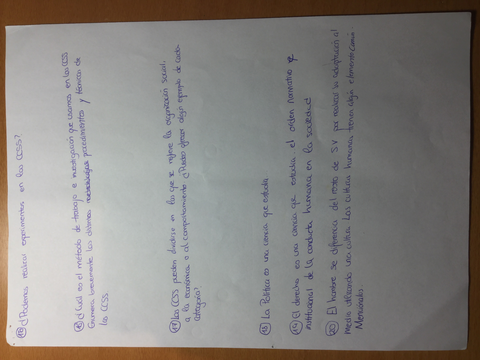 ¿Podemos realizar experimentos en las CCSS?
¿Cuál es el método de trabajo e investigación que usamos en las CCSS
Enumera brevemente los distintos procedimientos y técnicas de
las CCSS
⑰ Las CCSS pueden dividirse en las que se refiere la organización social,
a la económica o al comportamiento ¿Puedes poner algún ejemplo de cada
categoría?
⑱ La Política es una ciencia que estudia
⑲ El derecho es una ciencia que estudia el orden normativo e
institucional de la conducta humana en la sociedad
⑳ El hombre se diferencia del resto de S.V por realizar la adaptación al
medio utilizando una cultura. Las cultura humana, tienen algún elemento Común
Menciónalos